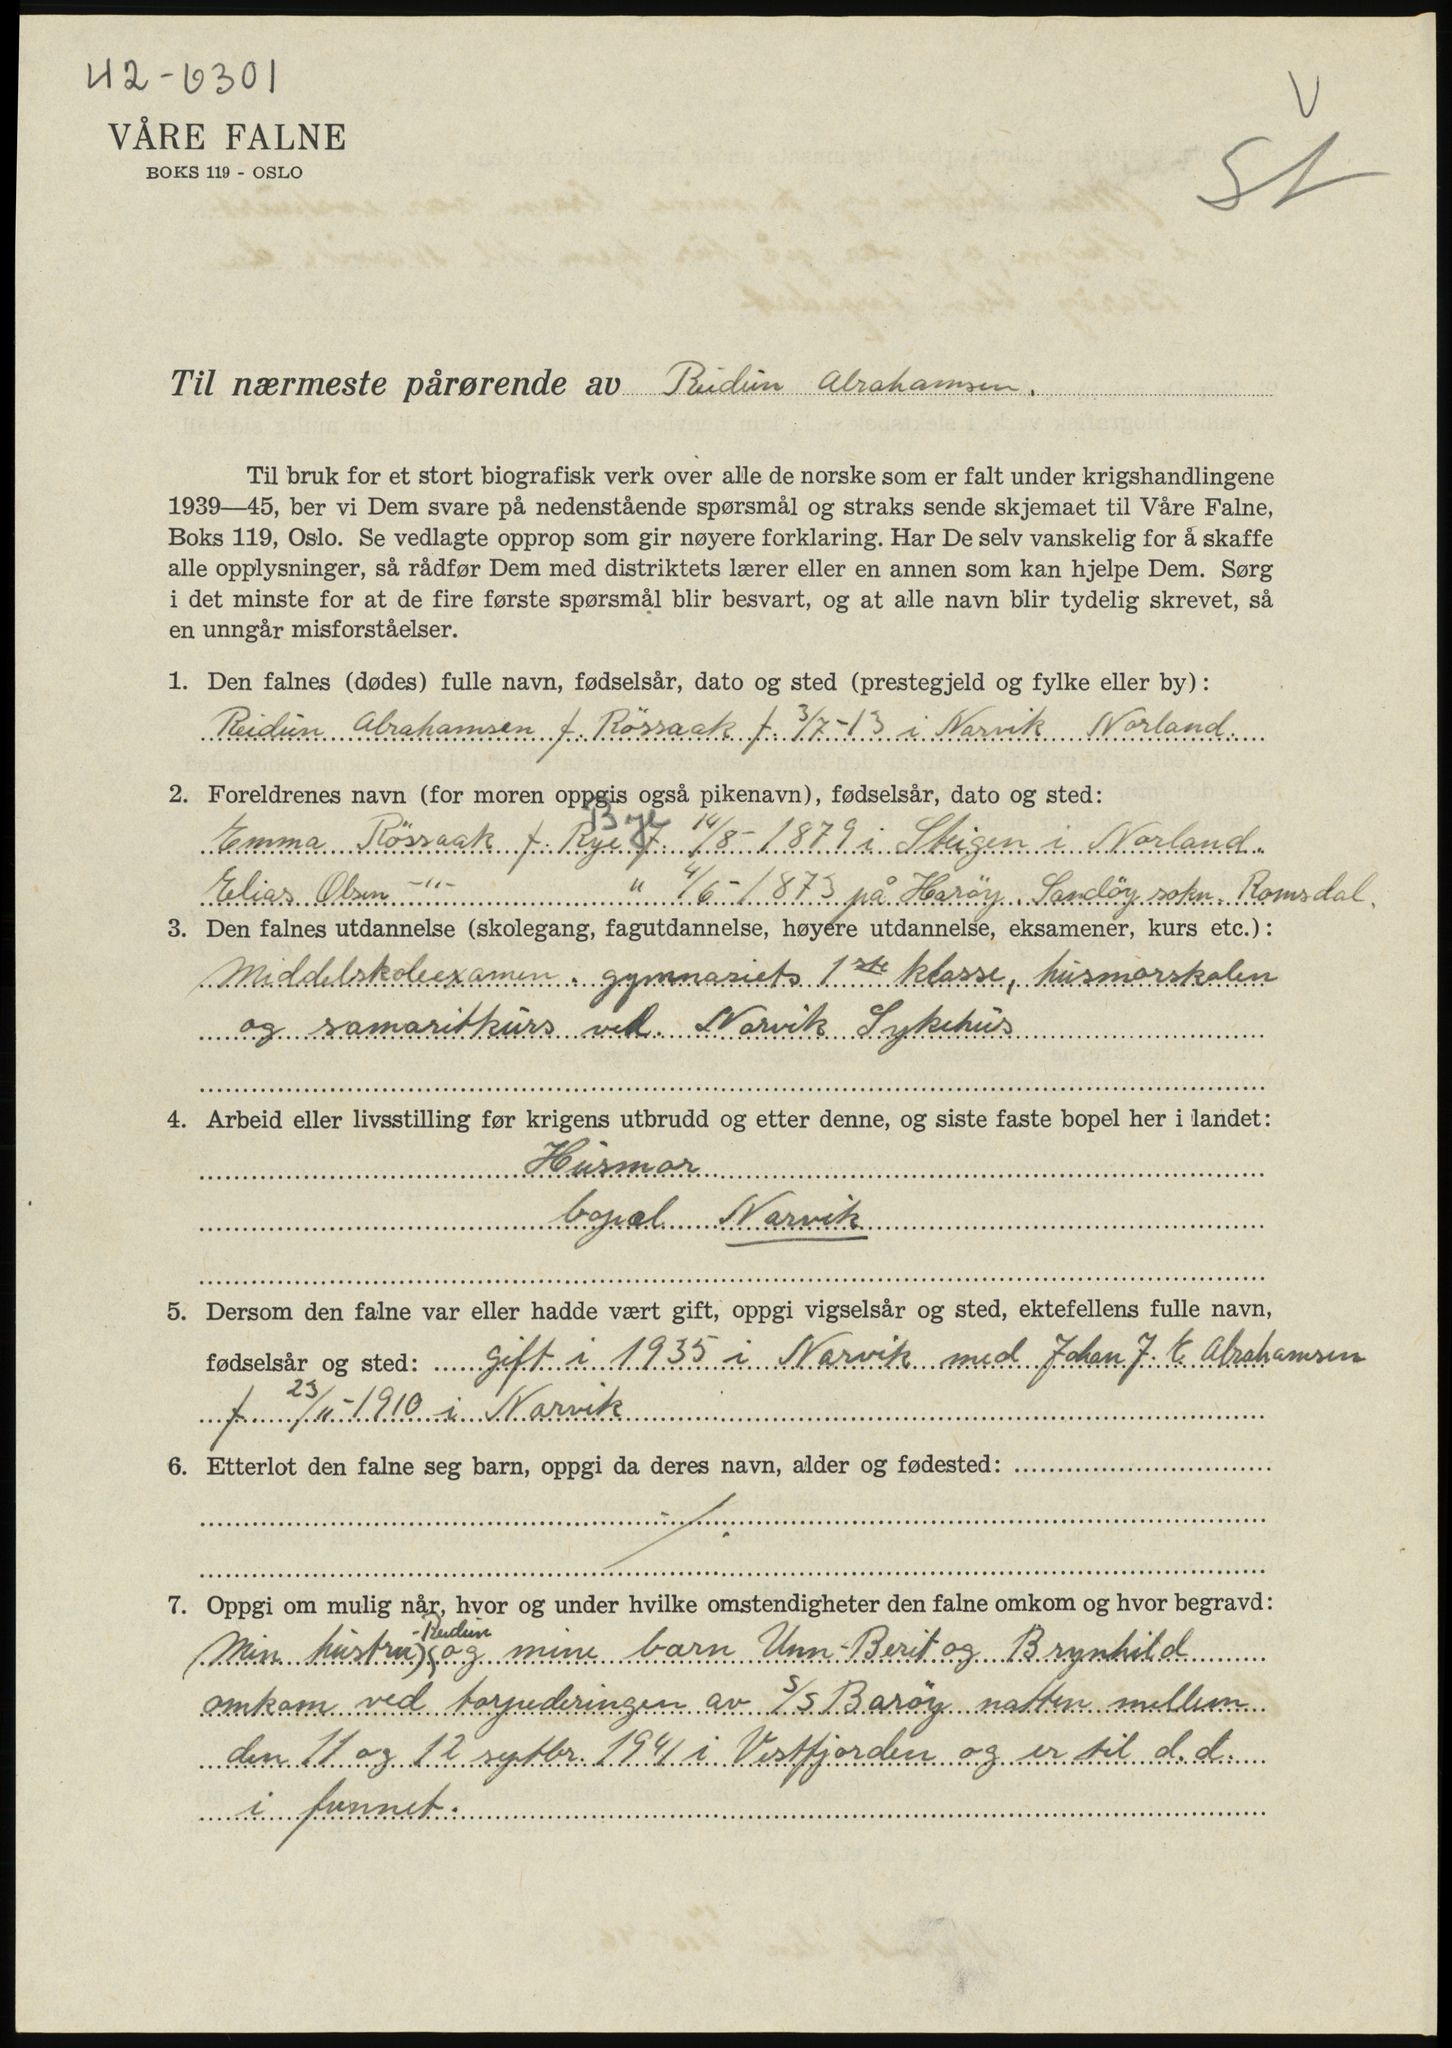 42-0301
V
St
VÅRE FALNE
BOKS 119 - OSLO
Til nærmeste pårørende av Reidun Abrahamsen.
Til bruk for et stort biografisk verk over alle de norske som er falt under krigshandlingene
1939—45, ber vi Dem svare på nedenstående spørsmål og straks sende skjemaet til Våre Falne,
Boks 119, Oslo. Se vedlagte opprop som gir nøyere forklaring. Har De selv vanskelig for å skaffe
alle opplysninger, så rådfør Dem med distriktets lærer eller en annen som kan hjelpe Dem. Sørg
i det minste for at de fire første spørsmål blir besvart, og at alle navn blir tydelig skrevet, så
en unngår misforståelser.
1. Den falnes (dødes) fulle navn, fødselsår, dato og sted (prestegjeld og fylke eller by):
Reidun Abrahamsen f. Rössaak f. 3/7-13 i Narvik Norland.
2. Foreldrenes navn (for moren oppgis også pikenavn), fødselsår, dato og sted:
Bye
Emma Rössaak f. Rye f. 14/8-1879 i Steigen i Norland.
Elias Olsen -"- " 4/6-1873 på Haröy. Sandöy sokn. Romsdal.
3. Den falnes utdannelse (skolegang, fagutdannelse, høyere utdannelse, eksamener, kurs etc.):
Middelskoleexamen. gymnasiets 1ste klasse, husmorskolen
og samaritkurs ved. Narvik Sykehus
4. Arbeid eller livsstilling før krigens utbrudd og etter denne, og siste faste bopel her i landet:
Husmor
bopel Narvik
5. Dersom den falne var eller hadde vært gift, oppgi vigselsår og sted, ektefellens fulle navn,
fødselsår og sted: gift i 1935 i Narvik med Johan J. E. Abrahamsen
f. 23/11-1910 i Narvik
6. Etterlot den falne seg barn, oppgi da deres navn, alder og fødested:
7. Oppgi om mulig når, hvor og under hvilke omstendigheter den falne omkom og hvor begravd:
-Reidun
Min hustru) og mine barn Unn-Berit og Brynhild
omkom ved torpederingen av S/S Baröy natten mellem
den 11 og 12 septbr. 1941 i Vestfjorden og er til d.d.
i funnet.